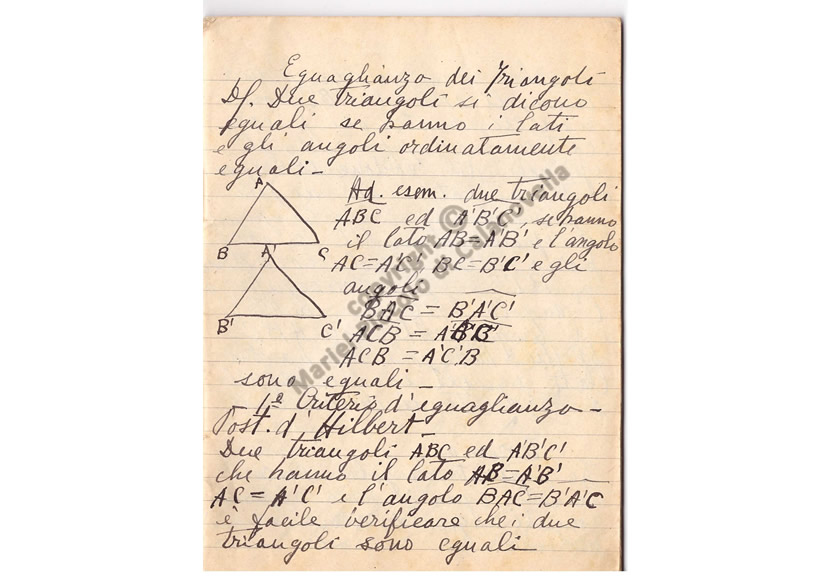 Eguaglianza dei Triangoli
Df. Due triangoli si dicono
eguali se hanno i lati
e gli angoli ordinatamente
eguali -
A
B
C
A'
B'
C'
Ad. esem. due triangoli
ABC ed A'B'C', se hanno
il lato AB=A'B' e l'angolo
AC=A'C' BC=B'C' e gli
angoli
BAC = B'A'C'
ACB =
ACB = A'C'B
sono eguali -
1º Criterio d'eguaglianza -
Post. d' Hilbert -
Due triangoli ABC ed A'B'C'
che hanno il lato AB=A'B'
AC = A'C' e l'angolo BAC=B'A'C
è facile verificare che i due
triangoli sono eguali
copyright ©